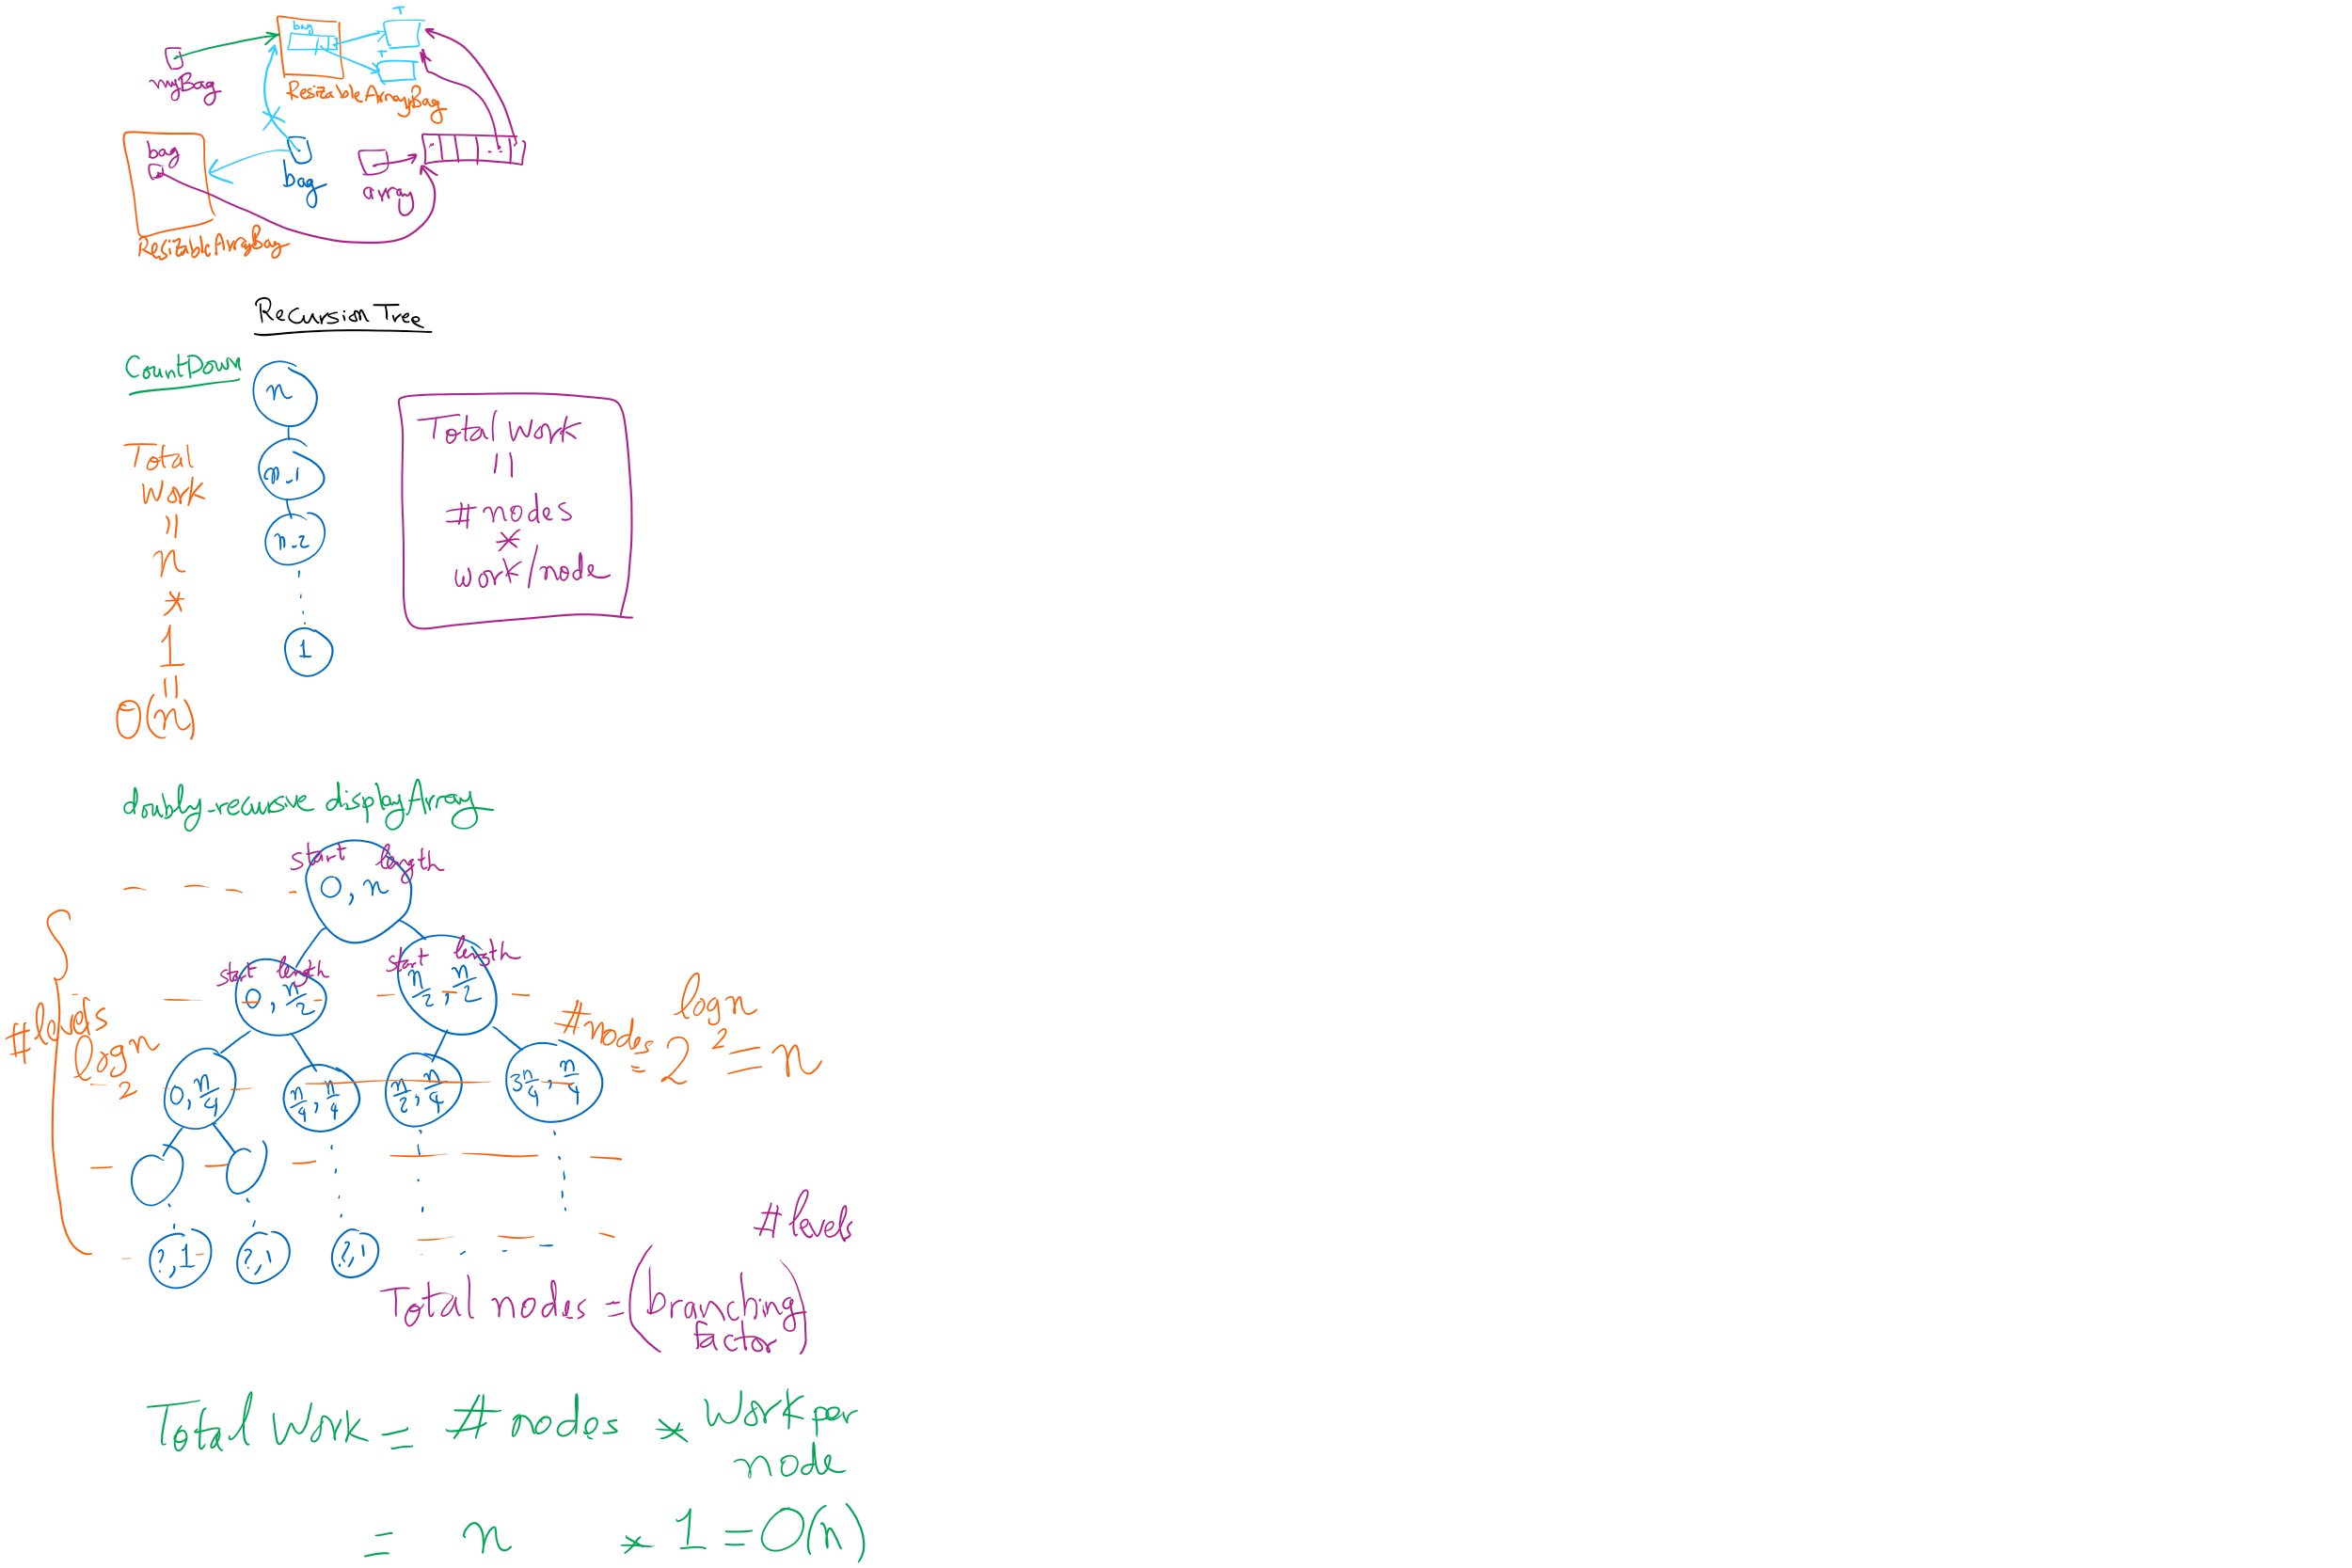 T
bag
T
myBag
ResizableArrayBag
bag
bag
array
ResizableArrayBag
Recursion Tree
CountDown
n
n-1
n-2
1
Total
Work
=
n
*
1
=
O(n)
Total Work
=
#nodes
*
work/node
doubly-recusive displayArray
start length
0, n
start length
0, n/2
start length
n/2, n/2
#levels
log₂ n
0, n/4
n/4, n/4
n/2, n/4
3n/4, n/4
#nodes = 2^(log₂ n) = n
?, 1
?, 1
?, 1
#levels
Total nodes = (branching
factor)
Total Work = #nodes * Work per
node
= n * 1 = O(n)